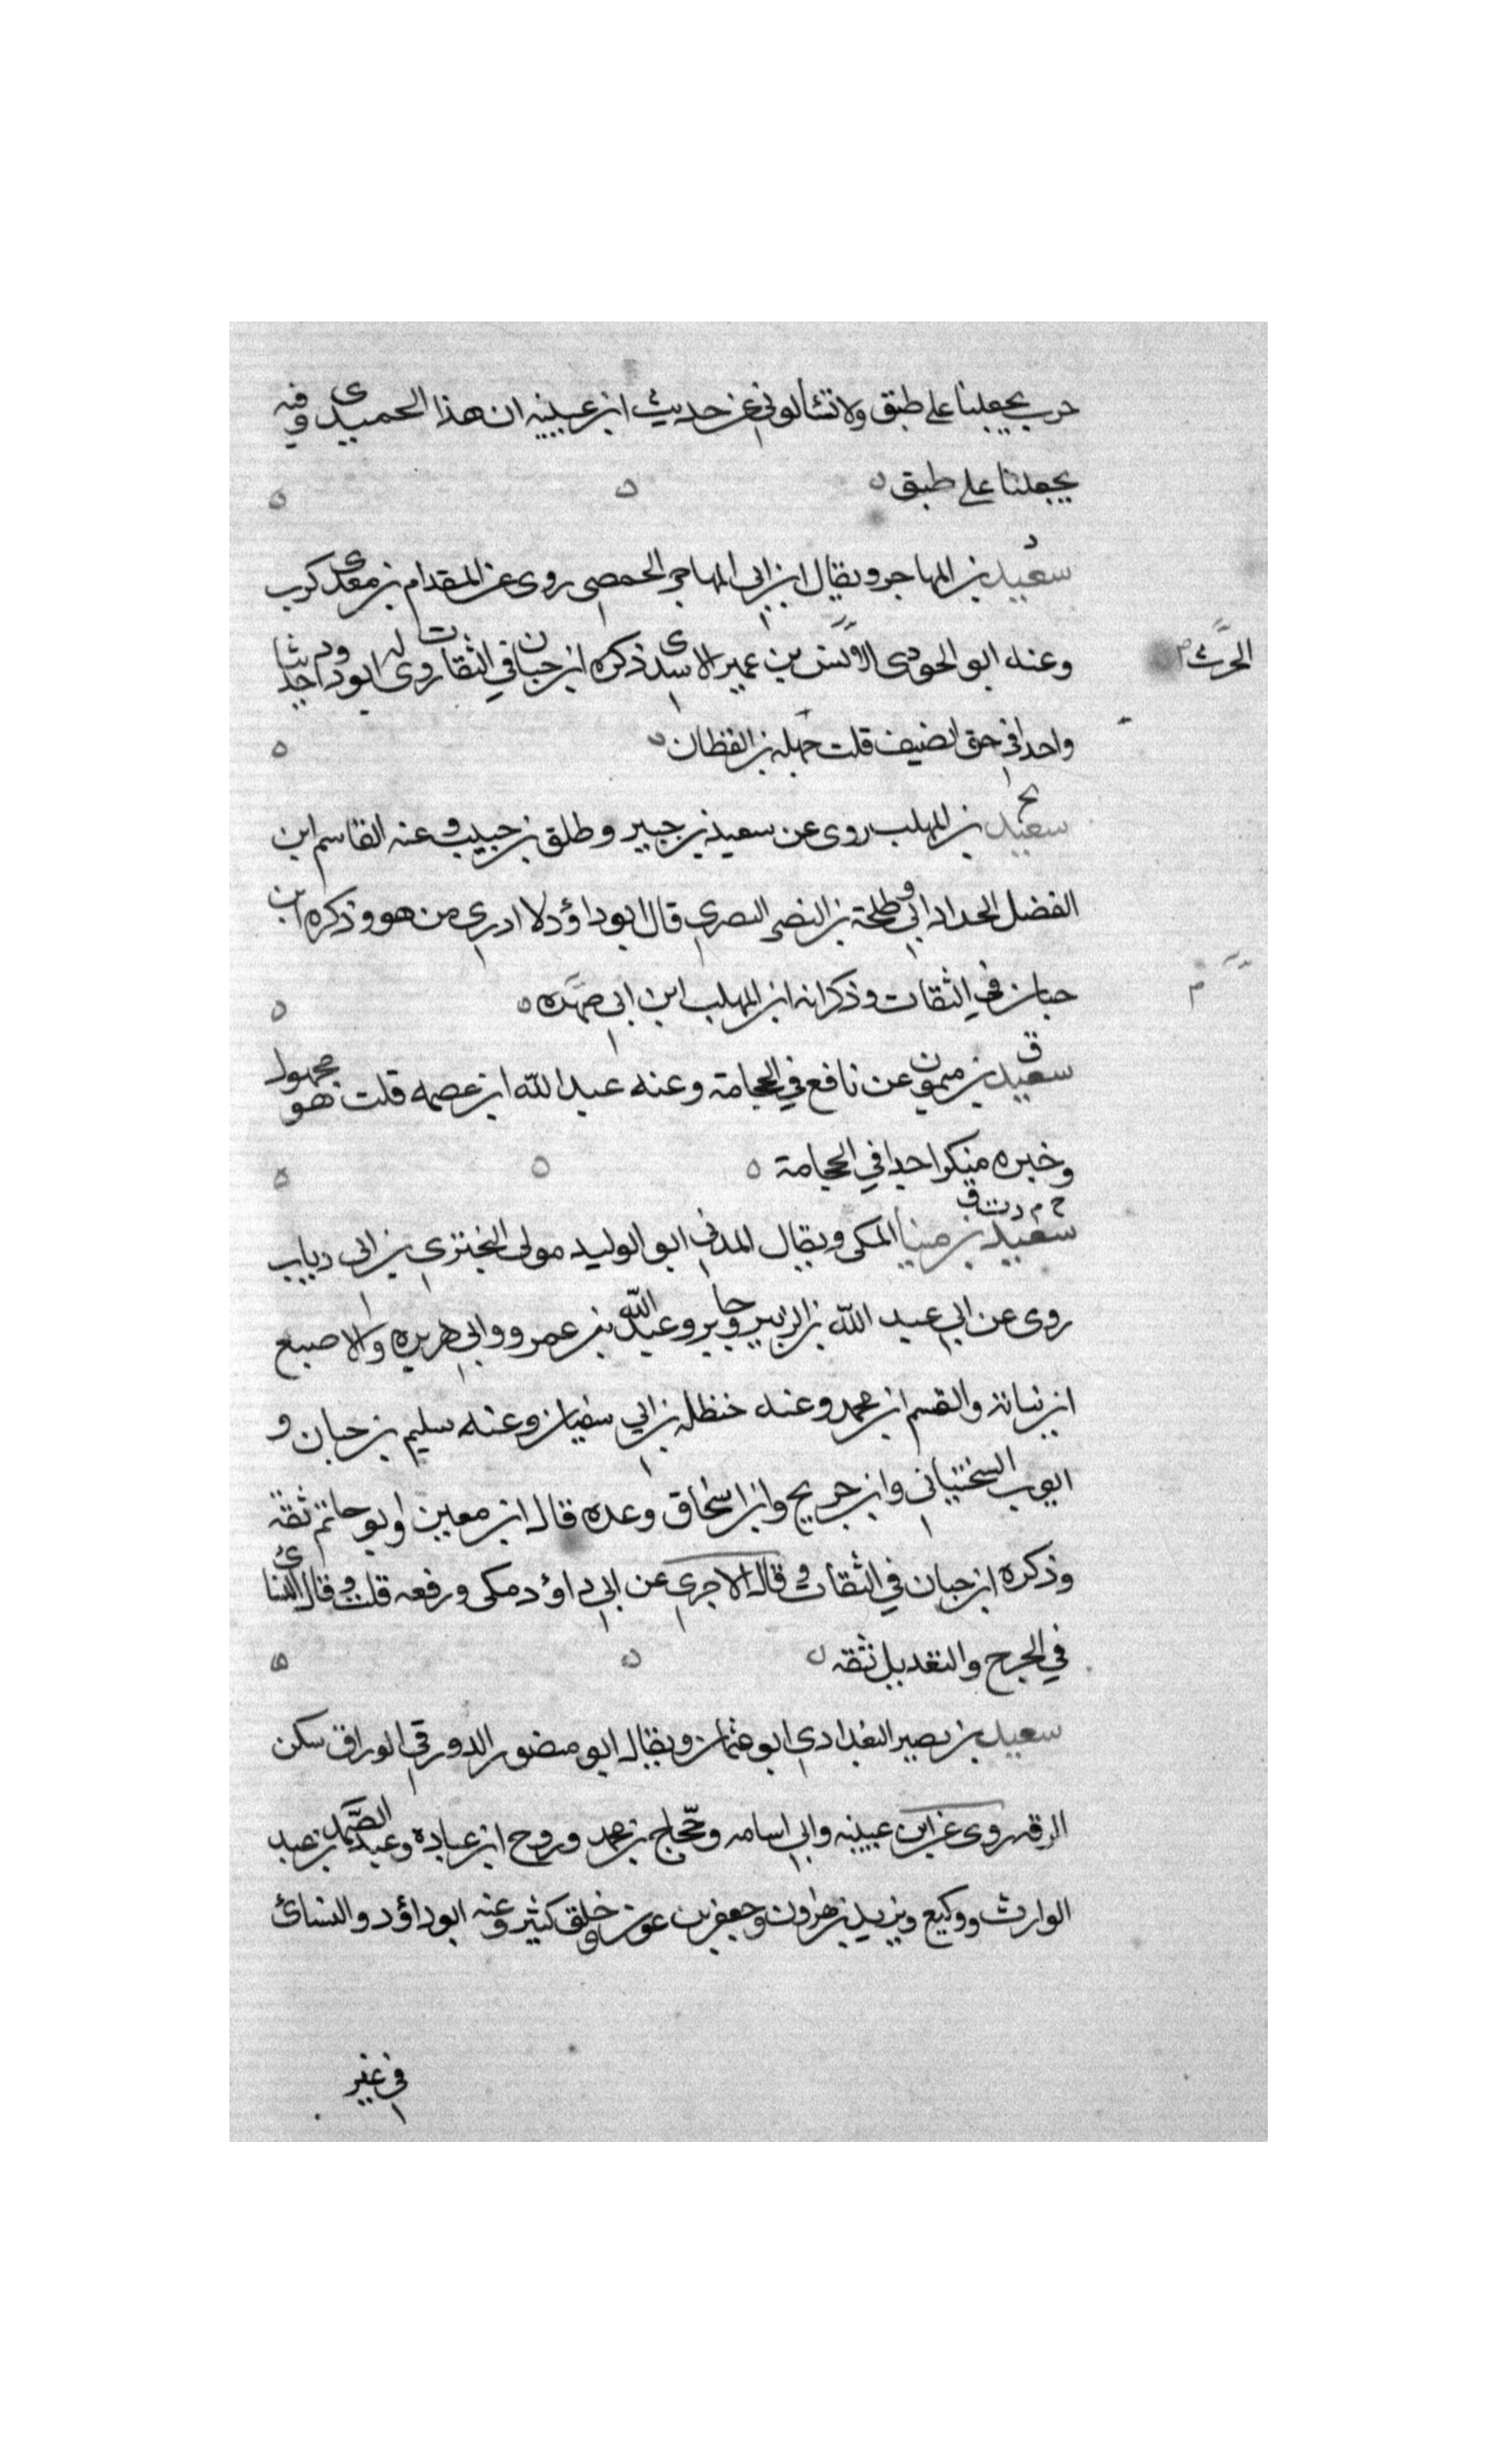 حرب يجعلنا على طبق ولا تسألوني عن حديث ابن عيينه ان هذا الحميدي وفيه
يجعلنا على طبق
سعيد بن المهاجر ويقال ابن ابي المهاجر الحمصي روى عن المقدام بن معدى كرب
وعنه ابو الجودى بن عمير الاسدى ذكره ابن حبان في الثقات روى له ابو داود حديثا
الحرث
واحدا في حق الضيف قلت جهله بن القطان
سعيد بن المهلب روى عن سعيد بن جبير وطلق بن حبيب وعنه القاسم ابن
الفضل الحدانى وطلحة بن النضر البصرى قال ابو داؤد لا ادرى من هو وذكره ابن
حبان في الثقات وذكر انه ابن المهلب ابن ابي صفره
سعيد بن ميمون عن نافع في الحجامة وعنه عبد الله ابن عصمه قلت هو مجهول
وخبره منكر جدا في الحجامة
خ م د ت ق
سعيد بن مينا المكى ويقال المدني ابو الوليد مولى البخترى بن ابي ذباب
روى عن ابي عبد الله بن الزبير وجابر وعبد الله بن عمرو وابي هريره والاصبغ
ابن نباتة والقسم ابن محمد وعنه حنظله بن ابي سفيان وعنه سليم بن حبان و
ايوب السختياني وابن جريج وابن اسحاق وعده قال ابن معين وابو حاتم ثقة
وذكره ابن حبان في الثقات وقال الاجرى عن ابي داؤد مكى ورفعه قلت وقال النسائى
في الجرح والتعديل ثقه
سعيد بن نصير البغدادى ابو عثمان ويقال ابو منصور الدورقي الوراق سكن
الرقه روى عن ابن عيينه وابي اسامه وحجاج بن محمد وروح ابن عباده وعبد الصمد بن عبد
الوارث ووكيع ويزيد بن هرون وجعفر بن عون وخلق كثير وعنه ابو داؤد والنسائ
في غير